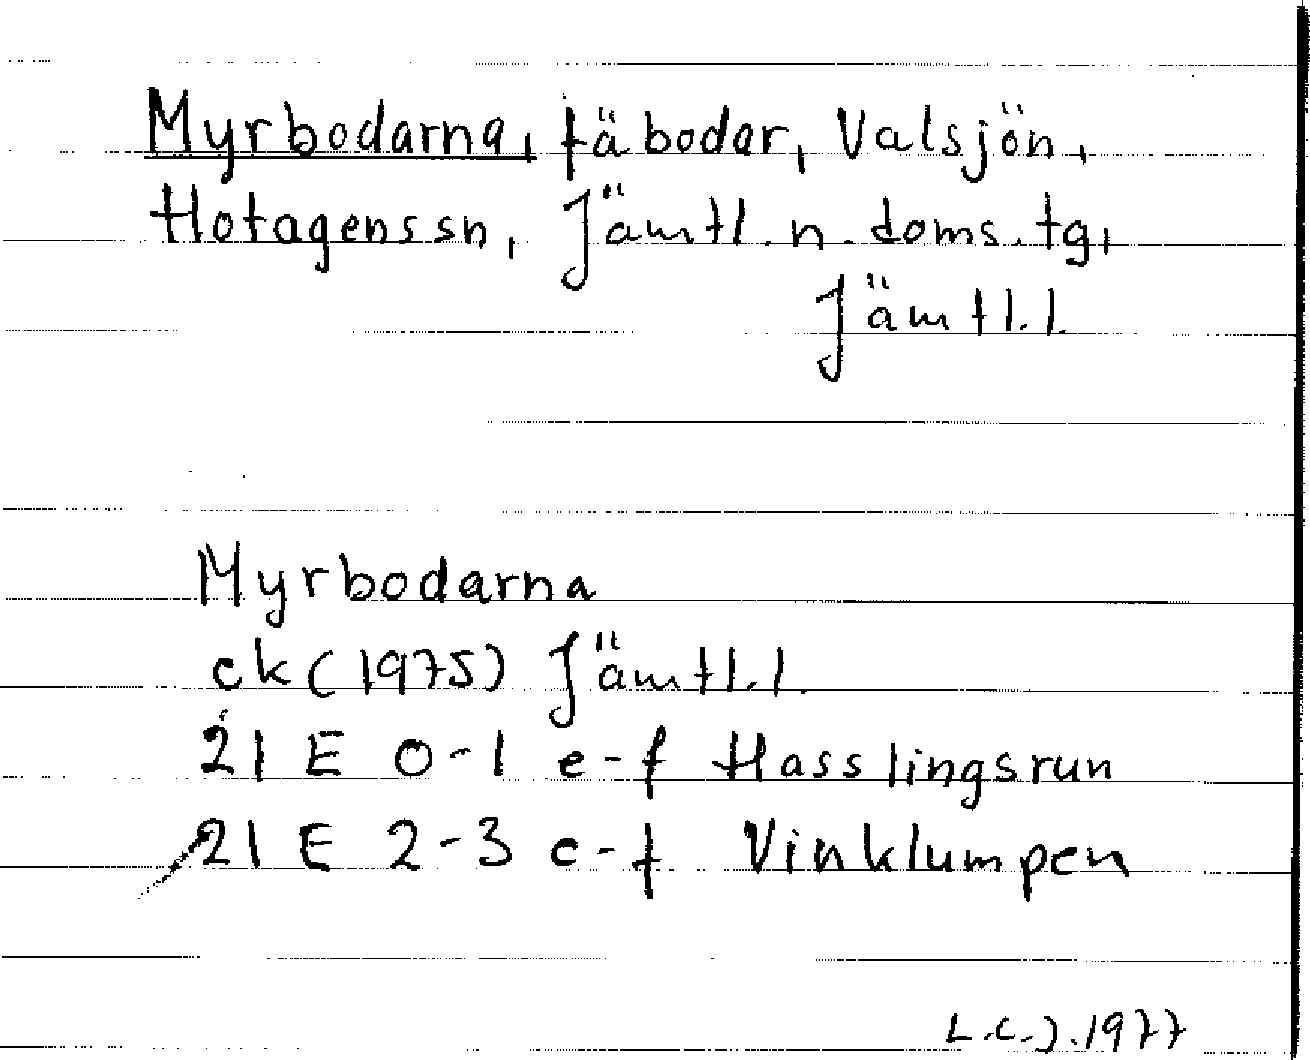 Myrbodarna, fäbodar, Valsjön,
Hotagens sn, Jämtl. n. doms. tg,
Jämtl. l.
Myrbodarna
ek (1975) Jämtl. l.
21 E 0-1 e-f Hasslingsrun
21 E 2-3 e-f Vinklumpen
L.C.J. 1977